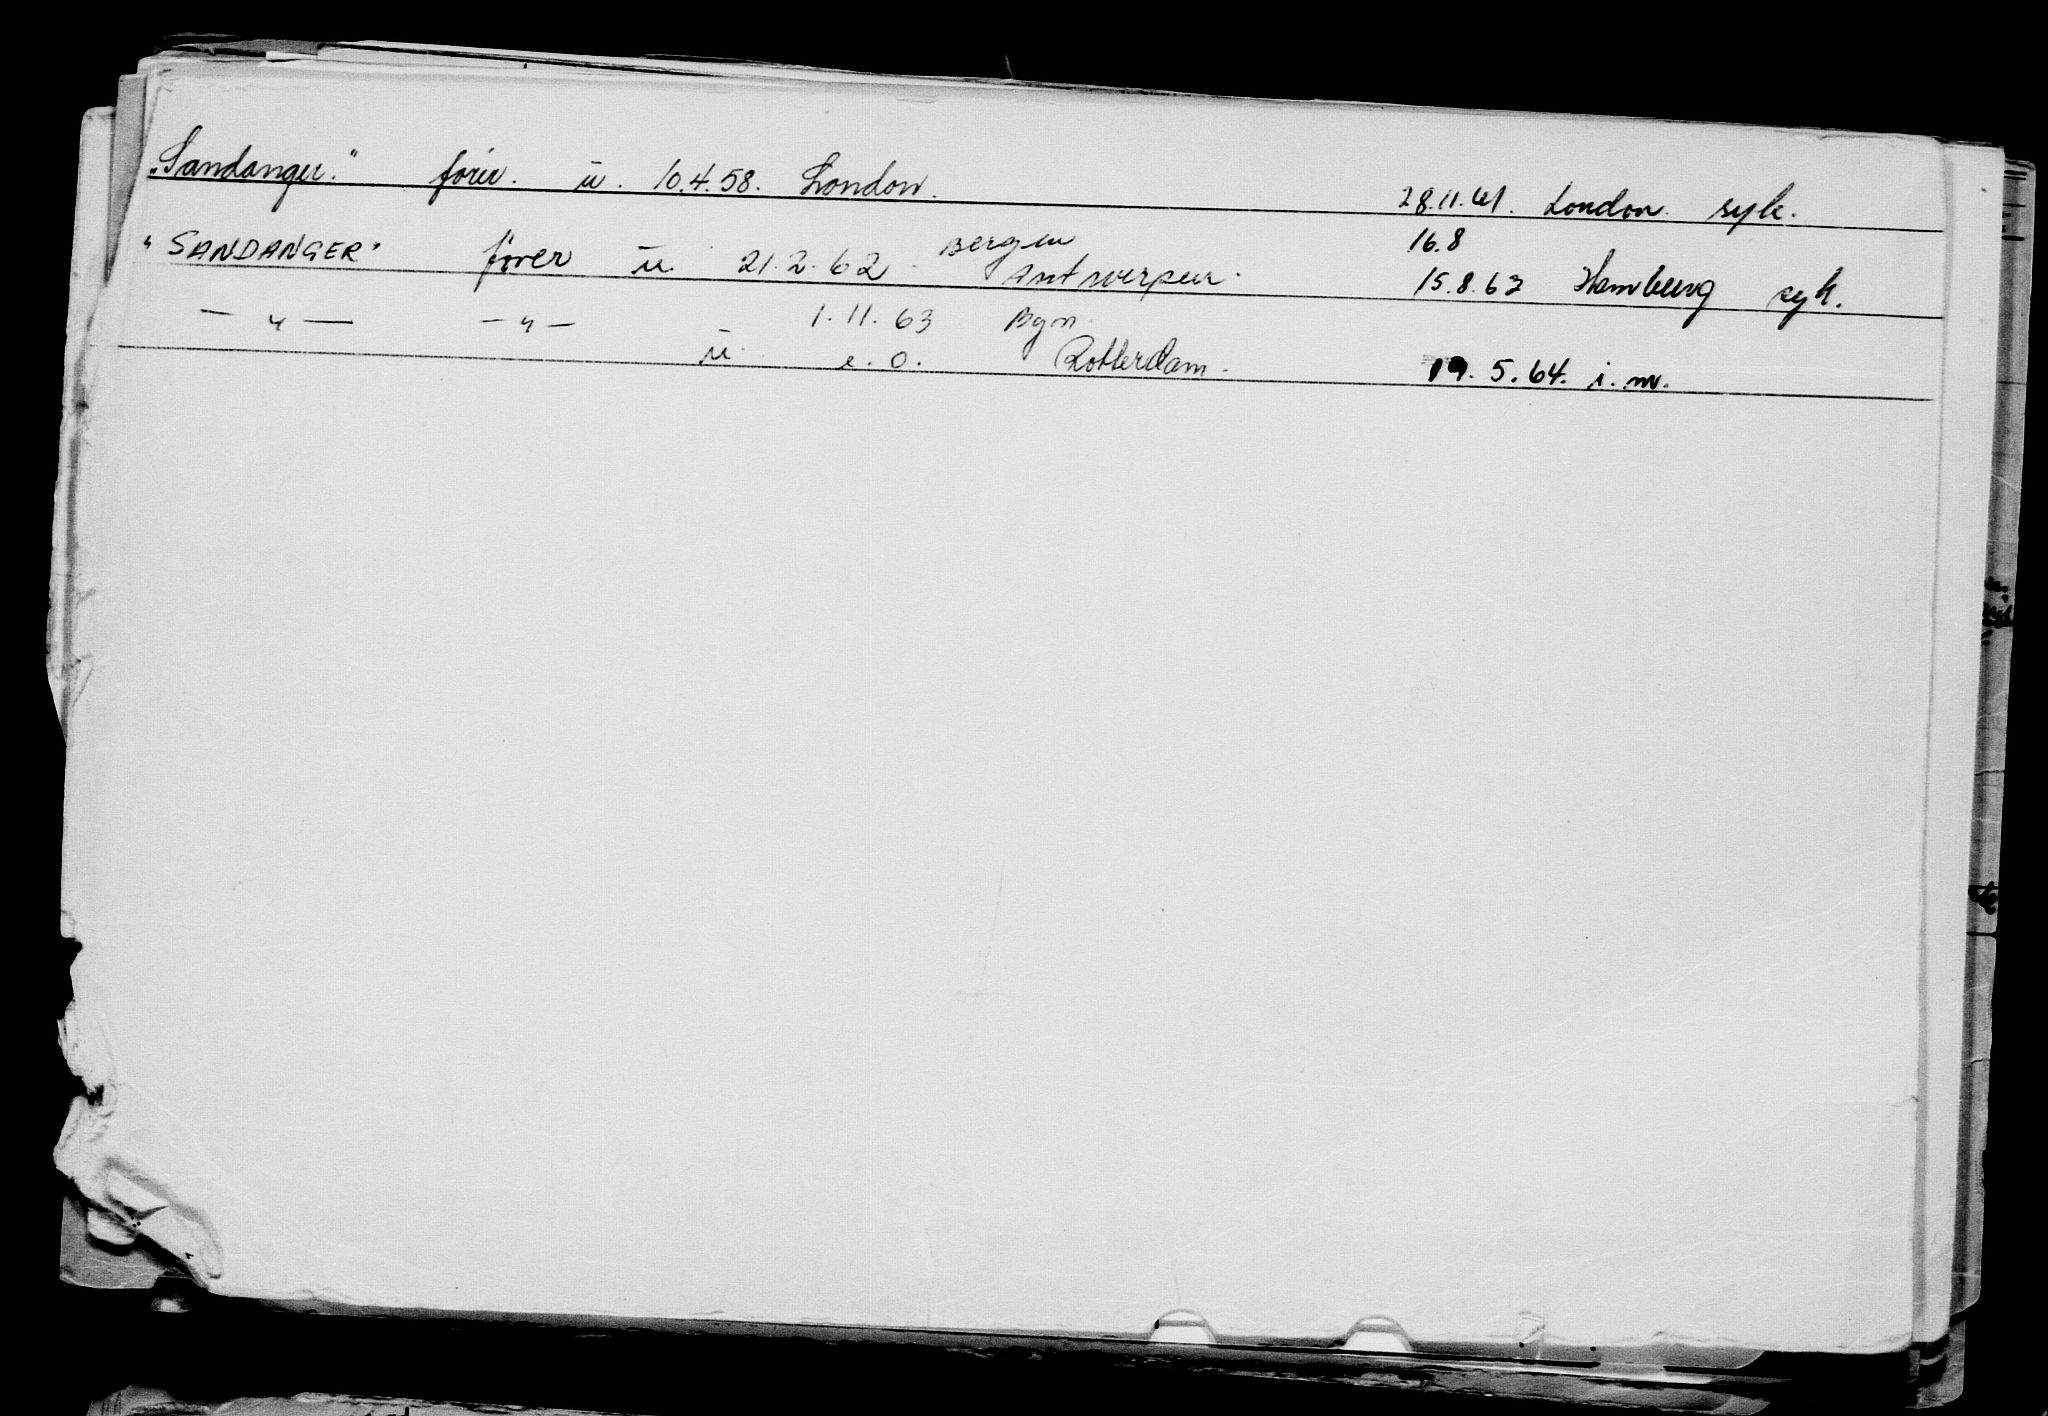 „Sandanger." förer. ū. 10.4.58. London. 28.11.61. London. syk.
"SANDANGER" förer ū. 21.2.62. Bergen Antwerpen. 16.8 15.8.63 Hamburg syk.
— " — — " — 1.11.63 Bgn.
ū. e.o. Rotterdam. 19.5.64. i.m.